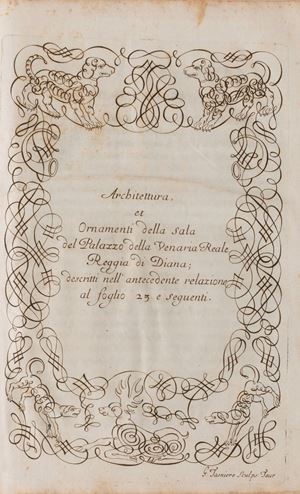 Architettura,
et
Ornamenti della sala
del Palazzo della Venaria Reale
Reggia di Diana;
descritti nell'antecedente relazione
al foglio 23 e seguenti.
G. Tasniere Sculps. Taur.